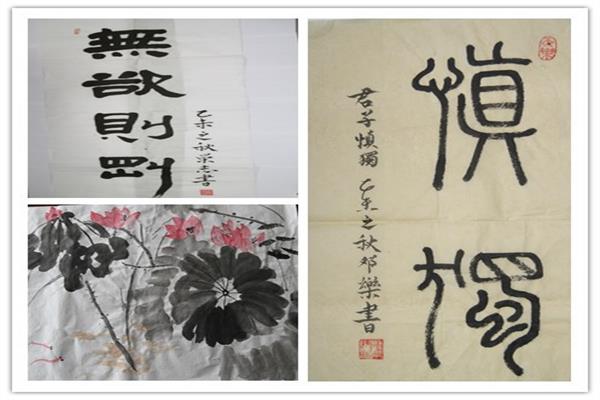 無欲則剛
乙未之秋荣志書
慎獨
君子慎獨 乙未之秋邓樂書